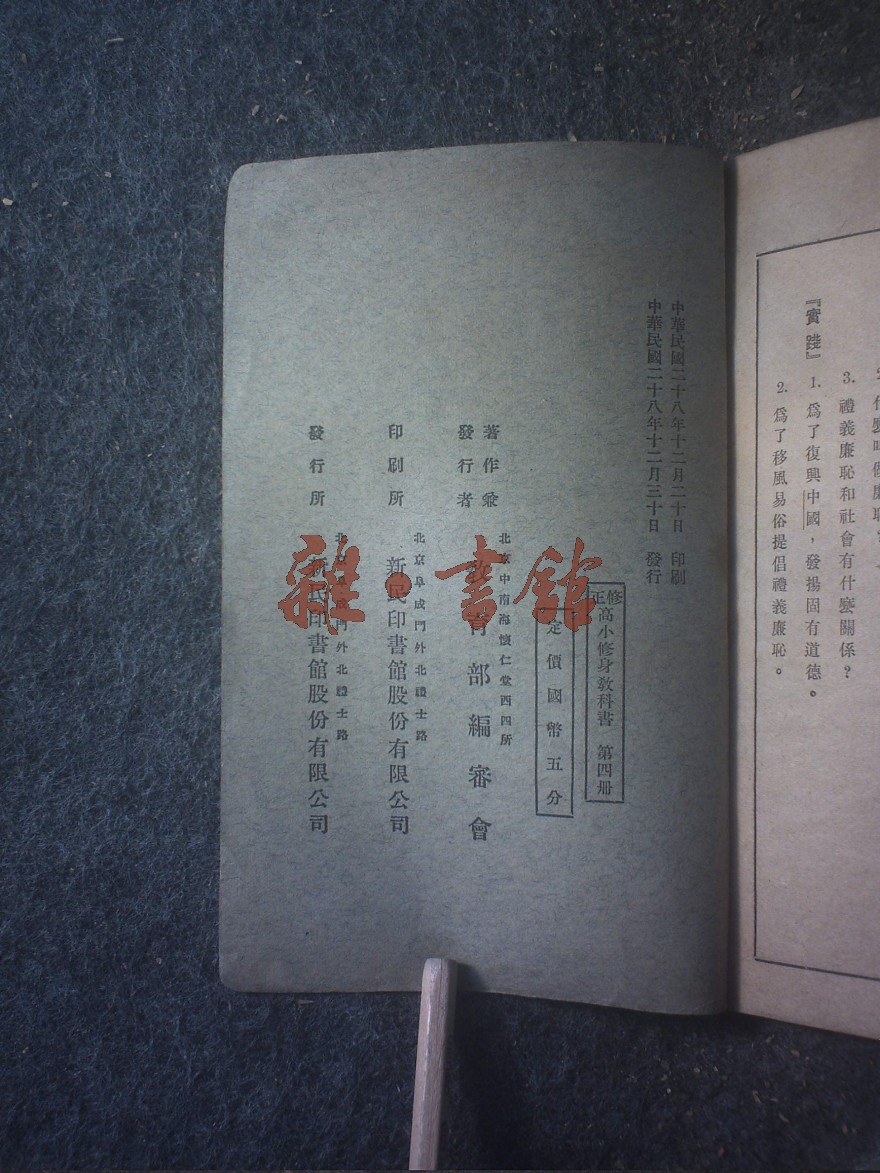 3. 禮義廉恥和社會有什麼關係？
『實踐』
1. 爲了復興中國，發揚固有道德。
2. 爲了移風易俗提倡禮義廉恥。
中華民國二十八年十二月二十日　印刷
中華民國二十八年十二月三十日　發行
修正高小修身敎科書　第四册
定價國幣五分
北京中南海懷仁堂西四所
著作兼
發行者
敎育部編審會
北京阜成門外北禮士路
印刷所　新民印書館股份有限公司
北京阜成門外北禮士路
發行所　新民印書館股份有限公司
雜·書館